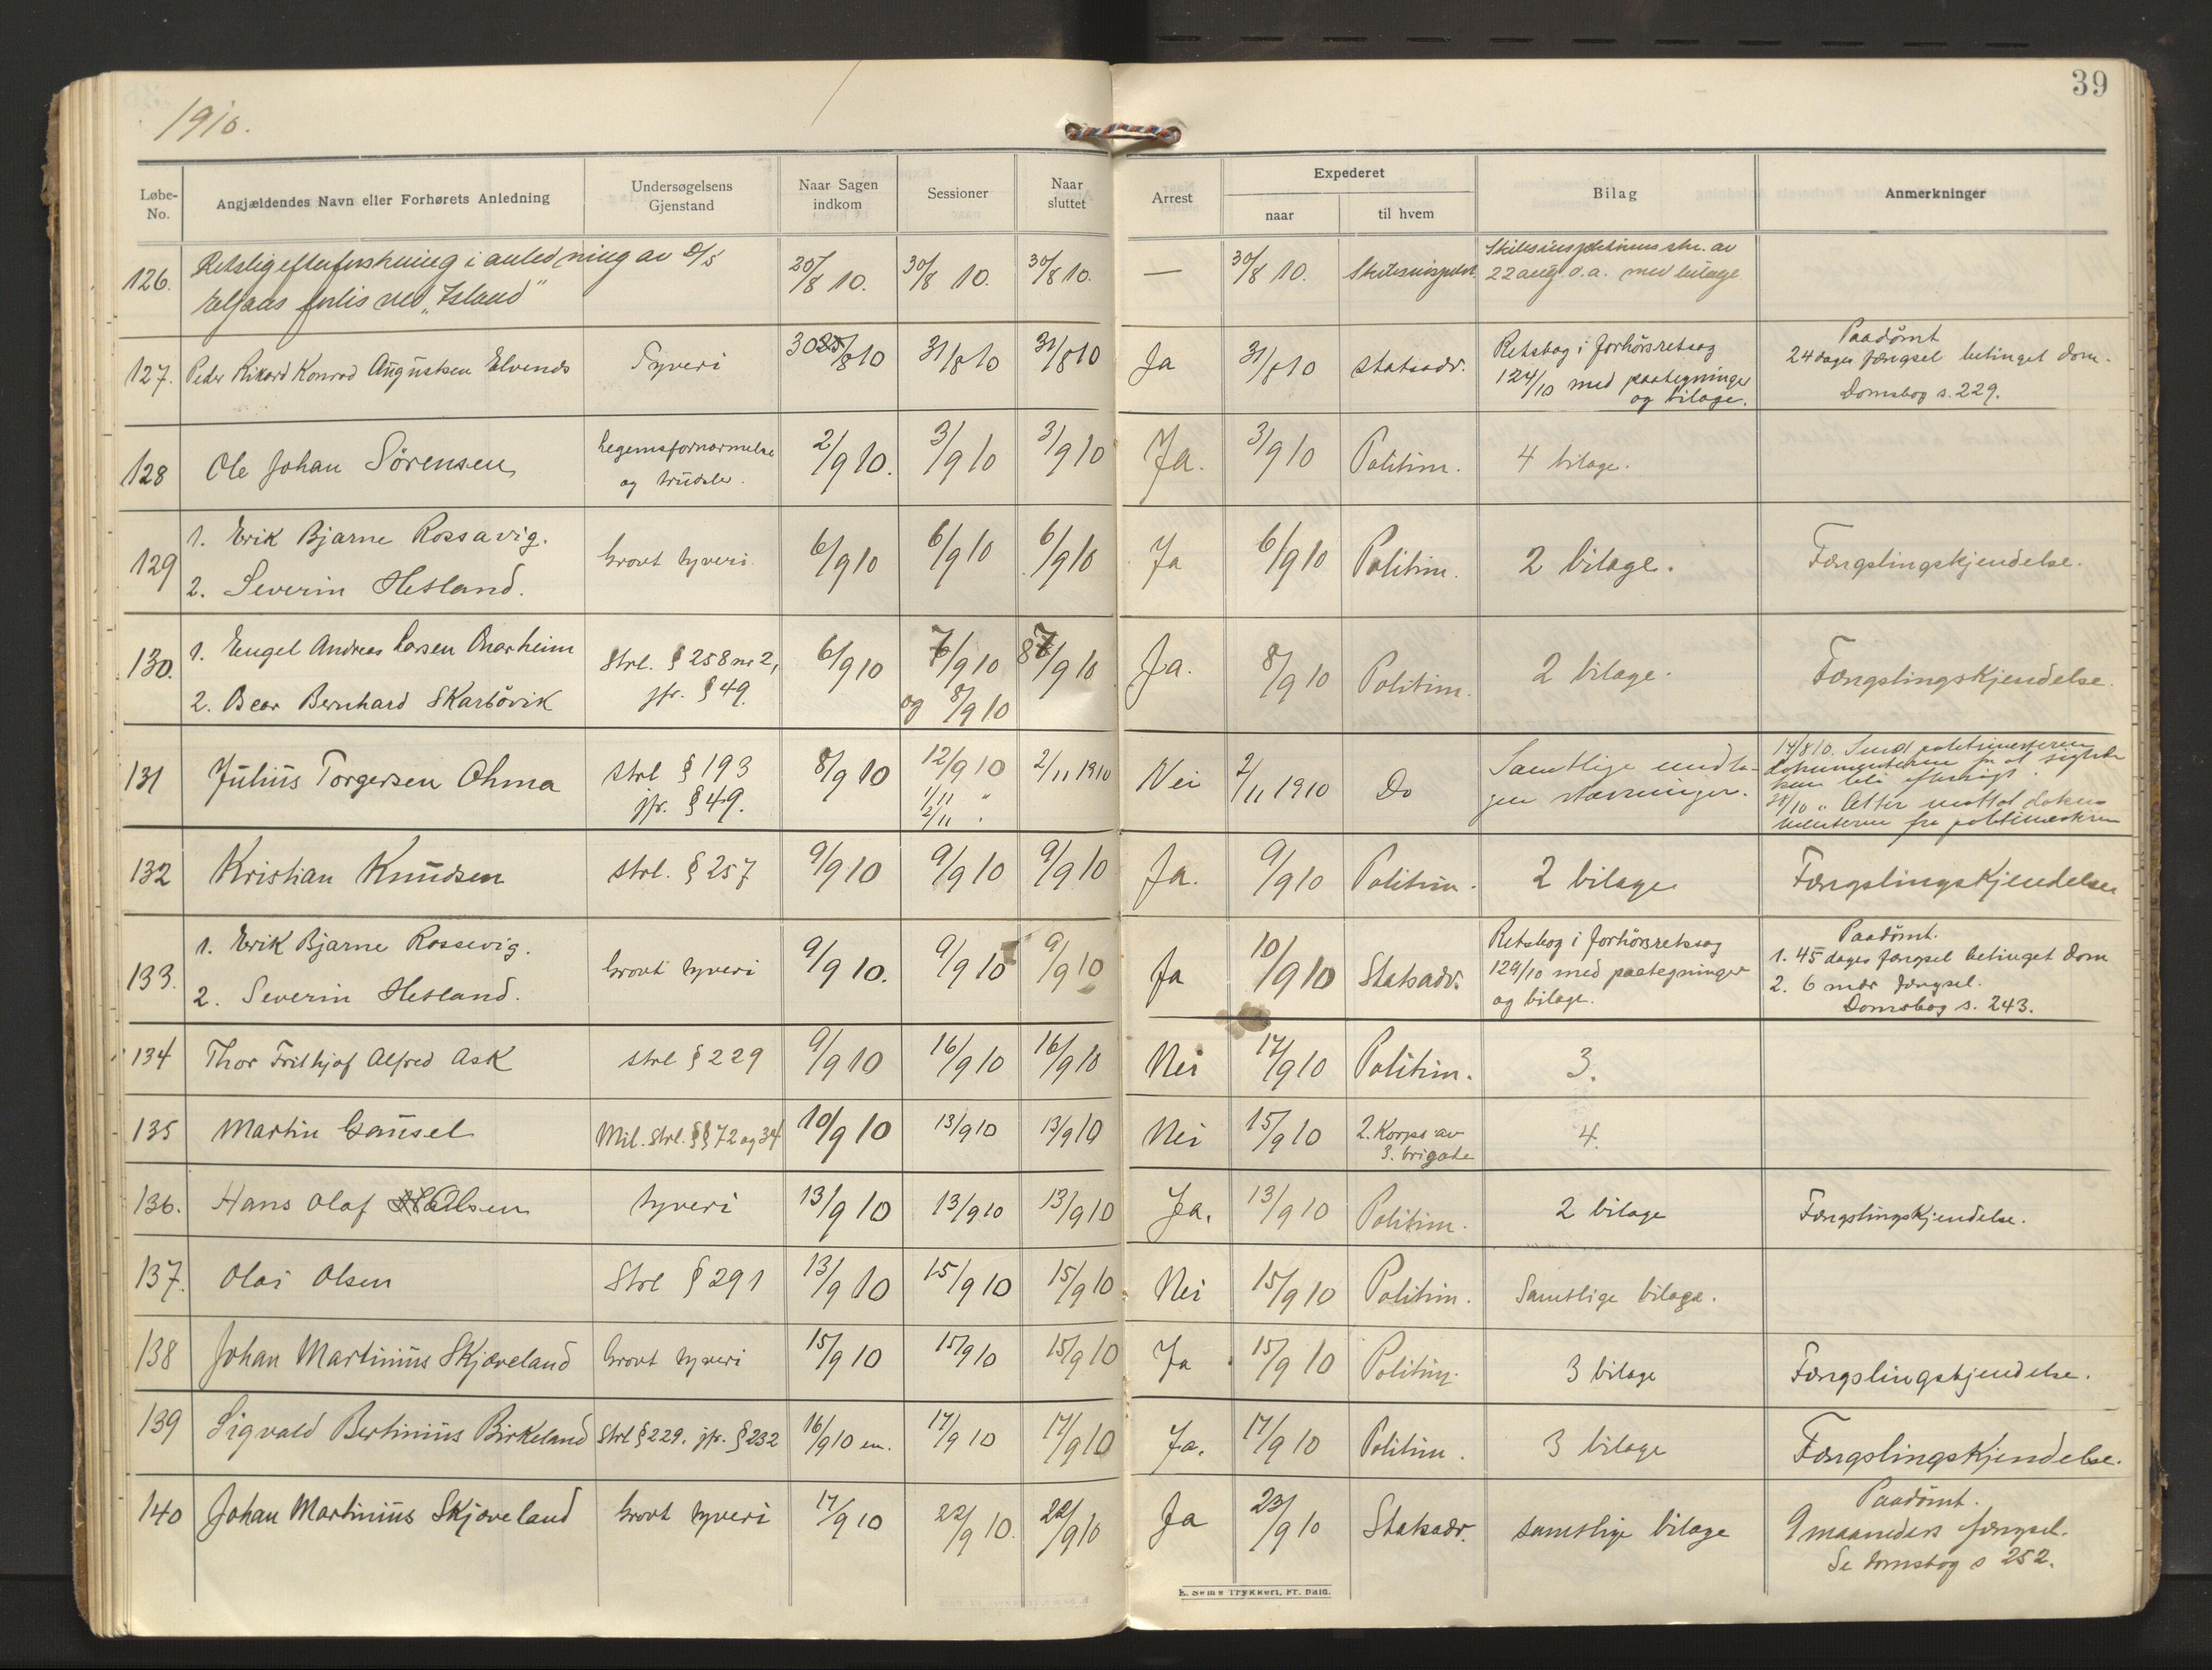 39
1910.
Løbe-No. Angjældendes Navn eller Forhørets Anledning Undersøgelsens Gjenstand Naar Sagen indkom Sessioner Naar sluttet Arrest Expederet naar til hvem Bilag Anmerkninger
126. Retslig efterforskning i anledning av D/S 20/8 10. 30/8 10. 30/8 10. — 30/8 10.
forlis ved "Island" 22 aug. d.a. med bilage
127. Peder Rikard Konrad Augustsen Elvends Tyveri 30/8 10 31/8 10 31/8 10 Ja 31/8 10 Statsadv. Retsbog i forhörsretssag Paadömt
124/10 med paategninger 24 dages fængsel betinget dom.
og bilage. Domsbog s. 229.
128 Ole Johan Sörensen Legemsfornærmelse 2/9 10. 3/9 10 3/9 10 Ja. 3/9 10 Politim. 4 bilage.
og trudsler.
129 1. Erik Bjarne Rossavig. Grovt tyveri 6/9 10 6/9 10 6/9 10 Ja 6/9 10 Politim. 2 bilage. Fængslingskjendelse.
2. Severin Hetland.
130. 1. Engel Andreas Larsen Onarheim Strl. § 258 nr 2, 6/9 10 7/9 10 8/9 10 Ja. 8/9 10 Politim. 2 bilage. Fængslingskjendelse.
2. Oscar Bernhard Skarbövik jfr. § 49. og 8/9 10
131 Julius Torgersen Ohma Strl § 193 8/9 10 12/9 10 2/11 1910 Nei 2/11 1910 Do Samtlige undta- 14/8 10. Send politimesteren
jfr. § 49. 1/11 " gen stævninger. dokumenterne for at sigtede
2/11 " kan bli eftersögt.
28/10 " Atter mottat doku-
menterne fra politimesteren
132 Kristian Knudsen Strl. § 257 9/9 10 9/9 10 9/9 10 Ja. 9/9 10 Politim. 2 bilage Fængslingskjendelse
133. 1. Erik Bjarne Rossevig. Grovt tyveri 9/9 10. 9/9 10 9/9 10 Ja 10/9 10 Statsadv. Retsbog i forhörsretssag Paadömt.
2. Severin Hetland. 129/10 med paategninger 1. 45 dages fængsel betinget dom
og bilage. 2. 6 mdr fængsel.
Domsbog s. 243.
134 Thor Frithjof Alfred Ask Strl § 229 9/9 10 16/9 10 16/9 10 Nei 17/9 10 Politim. 3.
135 Martin Gausel Mil. Strl. §§ 72 og 34 10/9 10 13/9 10 13/9 10 Nei 15/9 10 2. Korps av 4.
3. brigade
136. Hans Olaf Olsen tyveri 13/9 10 13/9 10 13/9 10 Ja. 13/9 10 Politim. 2 bilage Fængslingskjendelse.
137. Olai Olsen Strl § 291 13/9 10 15/9 10 15/9 10 Nei 15/9 10 Politim. Samtlige bilage.
138 Johan Martinius Skjæveland Grovt tyveri 15/9 10 15/9 10 15/9 10 Ja 15/9 10 Politim. 3 bilage Fængslingskjendelse.
139 Sigvald Bertinius Birkeland Strl § 229. jfr. § 232 16/9 10 em. 17/9 10 17/9 10 Ja. 17/9 10 Politim. 3 bilage Fængslingskjendelse.
140 Johan Martinius Skjæveland Grovt tyveri 17/9 10 22/9 10. 22/9 10 Ja 23/9 10 Statsadv. samtlige bilage Paadömt.
9 maaneders fængsel.
Se domsbog s 252.
E. Sems Trykkeri, Fr.hald.